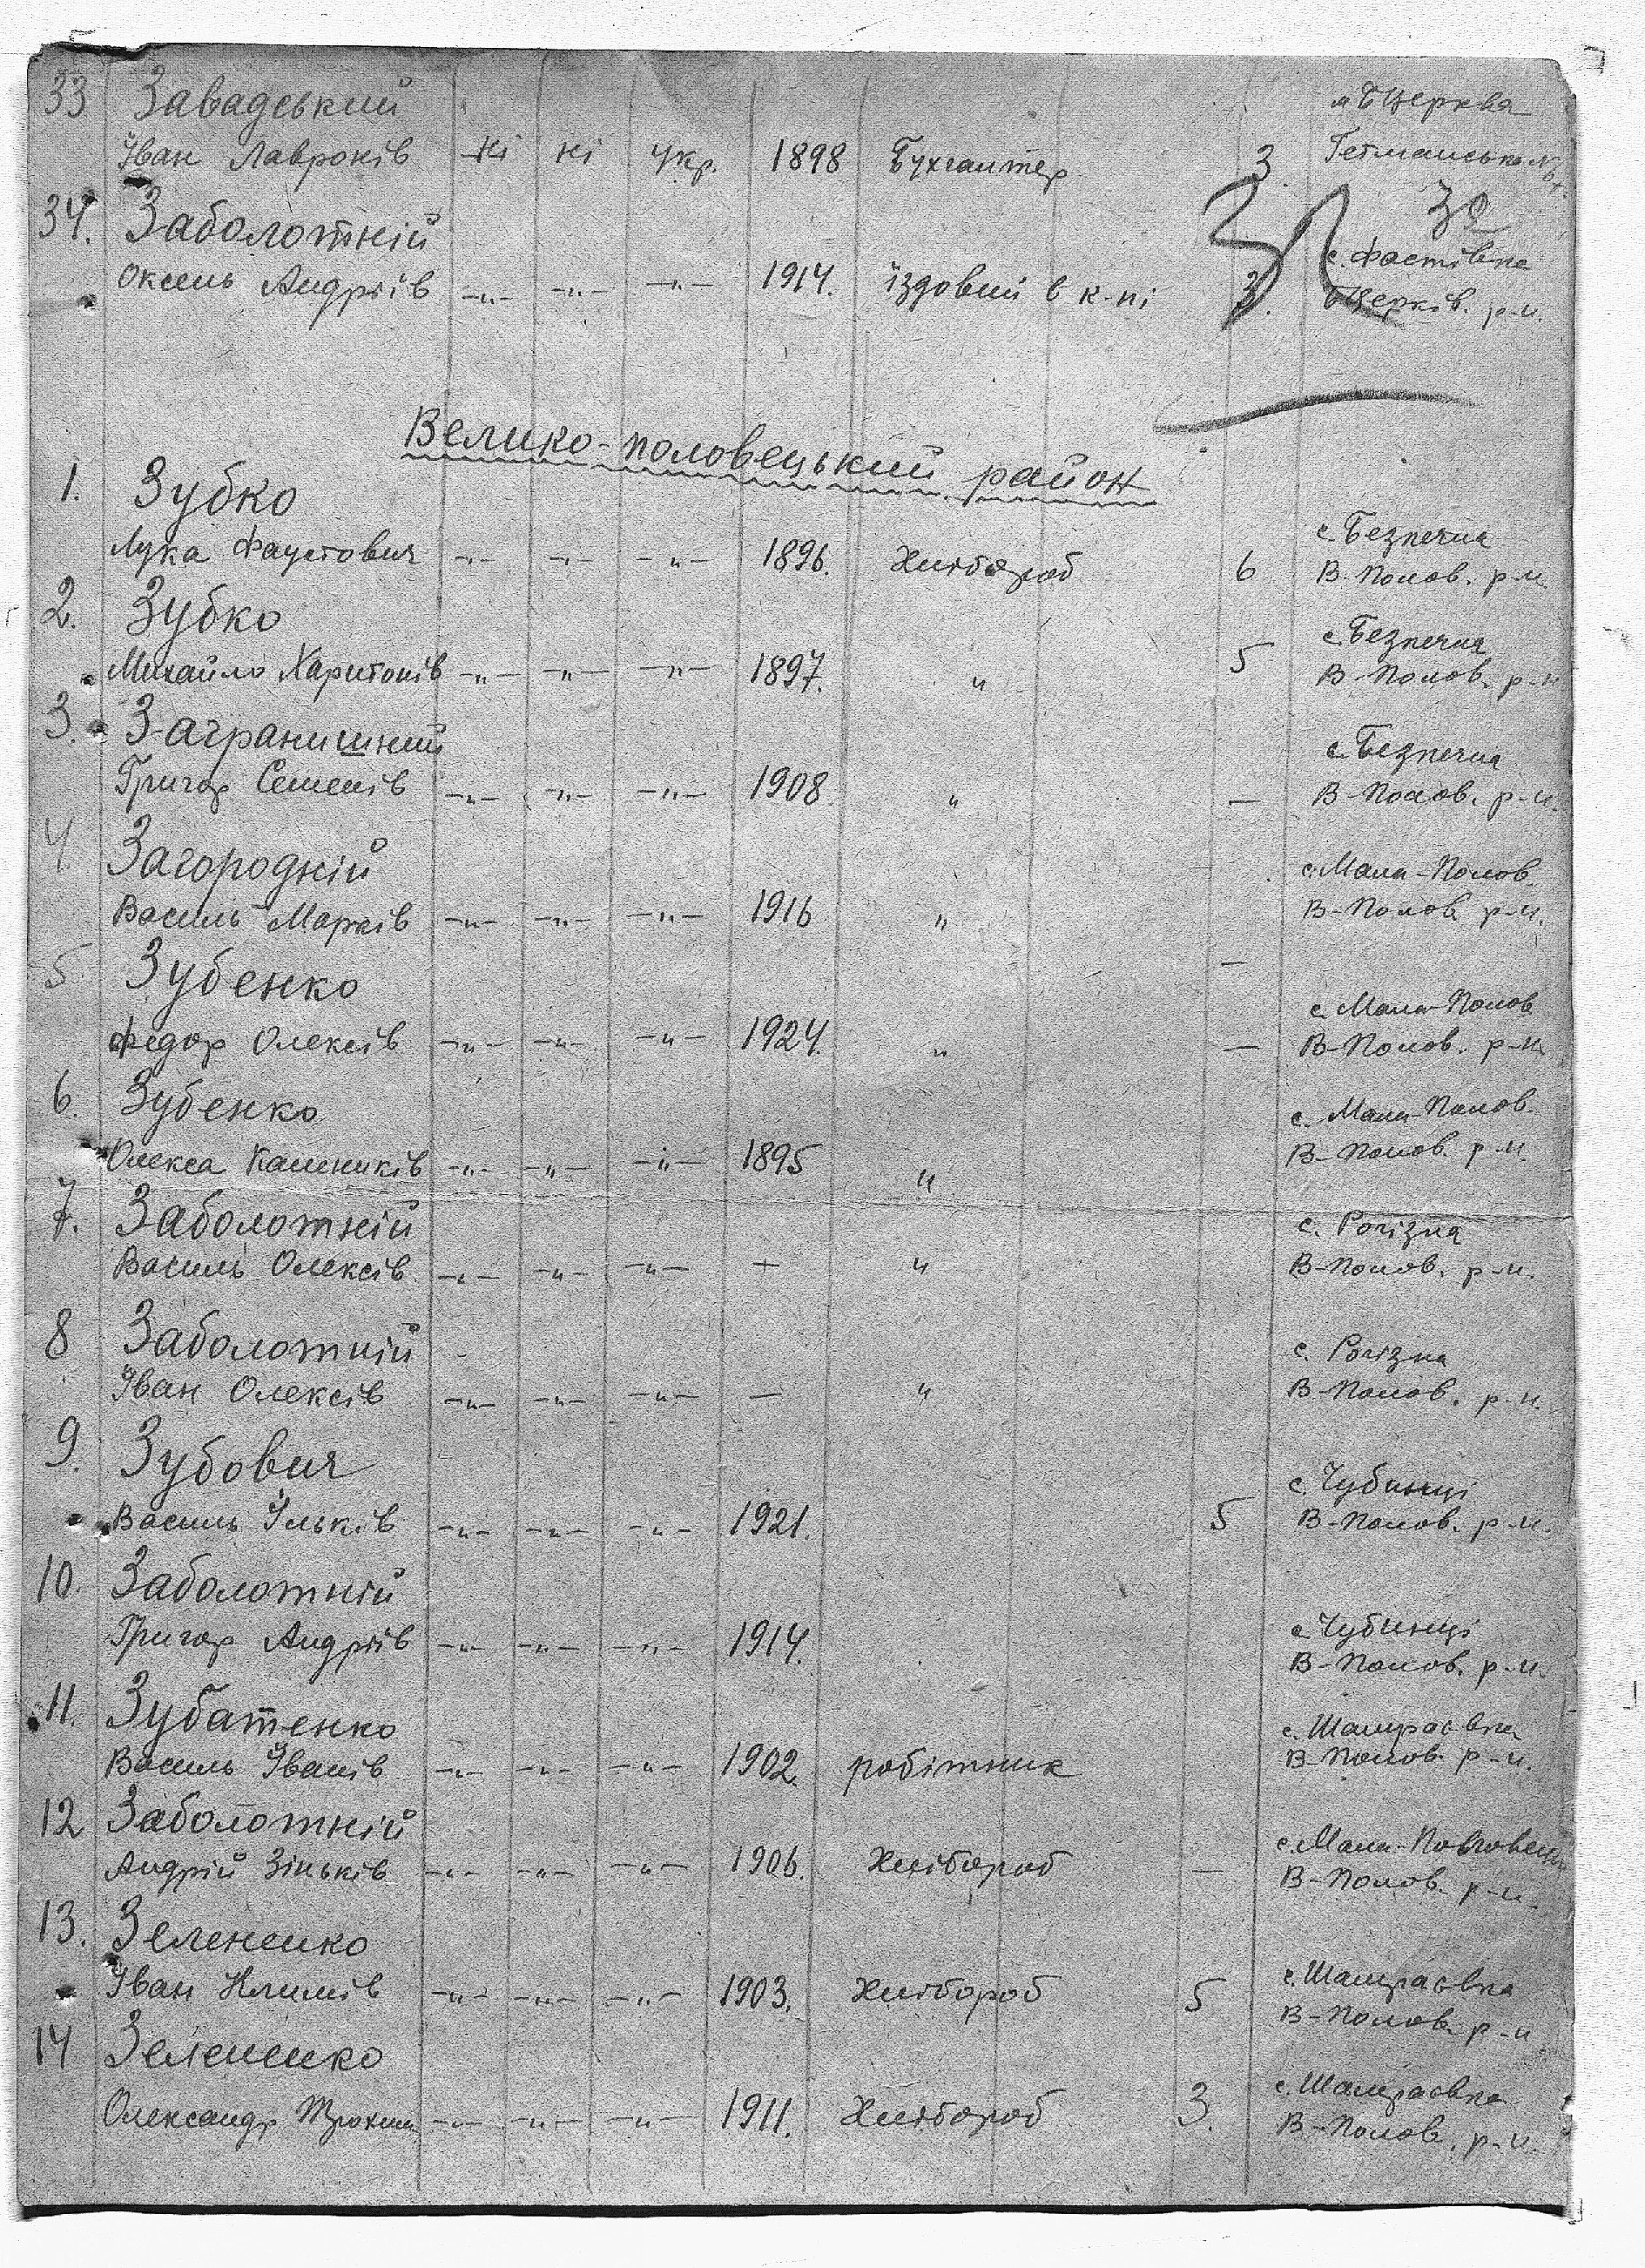 33 Завадський м Б Церква
Іван Лавронів ні ні укр. 1898 Бухгалтер 3 Гетманська №
34. Заболотній 32
Оксень Андріїв -"- -"- -"- 1914. їздовий в к-пі 3. с. Фастівка
БЦерків. р-н.
Велико-половецький район
1. Зубко с. Безпечна
Лука Фаустович -"- -"- -"- 1896. Хлібороб 6 В-Полов. р-н
2. Зубко с. Безпечна
Михайло Харитонів -"- -"- -"- 1897. " 5 В-Полов. р-н
3. Заграничний с. Безпечна
Григор Семенів -"- -"- -"- 1908 " — В-Полов. р-н.
4 Загородній с. Мала-Полов.
Василь Марків -"- -"- -"- 1916 " В-Полов р-н.
5 Зубенко — с. Мала-Полов
Федор Олексів -"- -"- -"- 1924. " — В-Полов. р-н
6. Зубенко с. Мала-Полов.
Олекса Калеників -"- -"- -"- 1895 " В-Полов. р-н.
7. Заболотній с. Рогізна
Василь Олексів -"- -"- -"- — " В-Полов. р-н.
8 Заболотній с. Рогізна
Іван Олексів -"- -"- -"- — " В-Полов. р-н.
9. Зубович с. Чубинці
Василь Ільків -"- -"- -"- 1921. 5 В-Полов. р-н.
10. Заболотній с. Чубинці
Григор Андріїв -"- -"- -"- 1914. В-Полов. р-н.
11. Зубатенко с. Шамраєвка
Василь Іванів -"- -"- -"- 1902. робітник В-Полов. р-н.
12 Заболотній с. Мала-Половецьк
Андрій Зіньків -"- -"- -"- 1906. Хлібороб — В-Полов. р-н.
13. Зелененко с. Шамраєвка
Іван Климів -"- -"- -"- 1903. Хлібороб 5 В-Полов. р-н
14 Зелененко с. Шамраєвка
Олександр Трохим -"- -"- -"- 1911. Хлібороб 3. В-Полов. р-н.